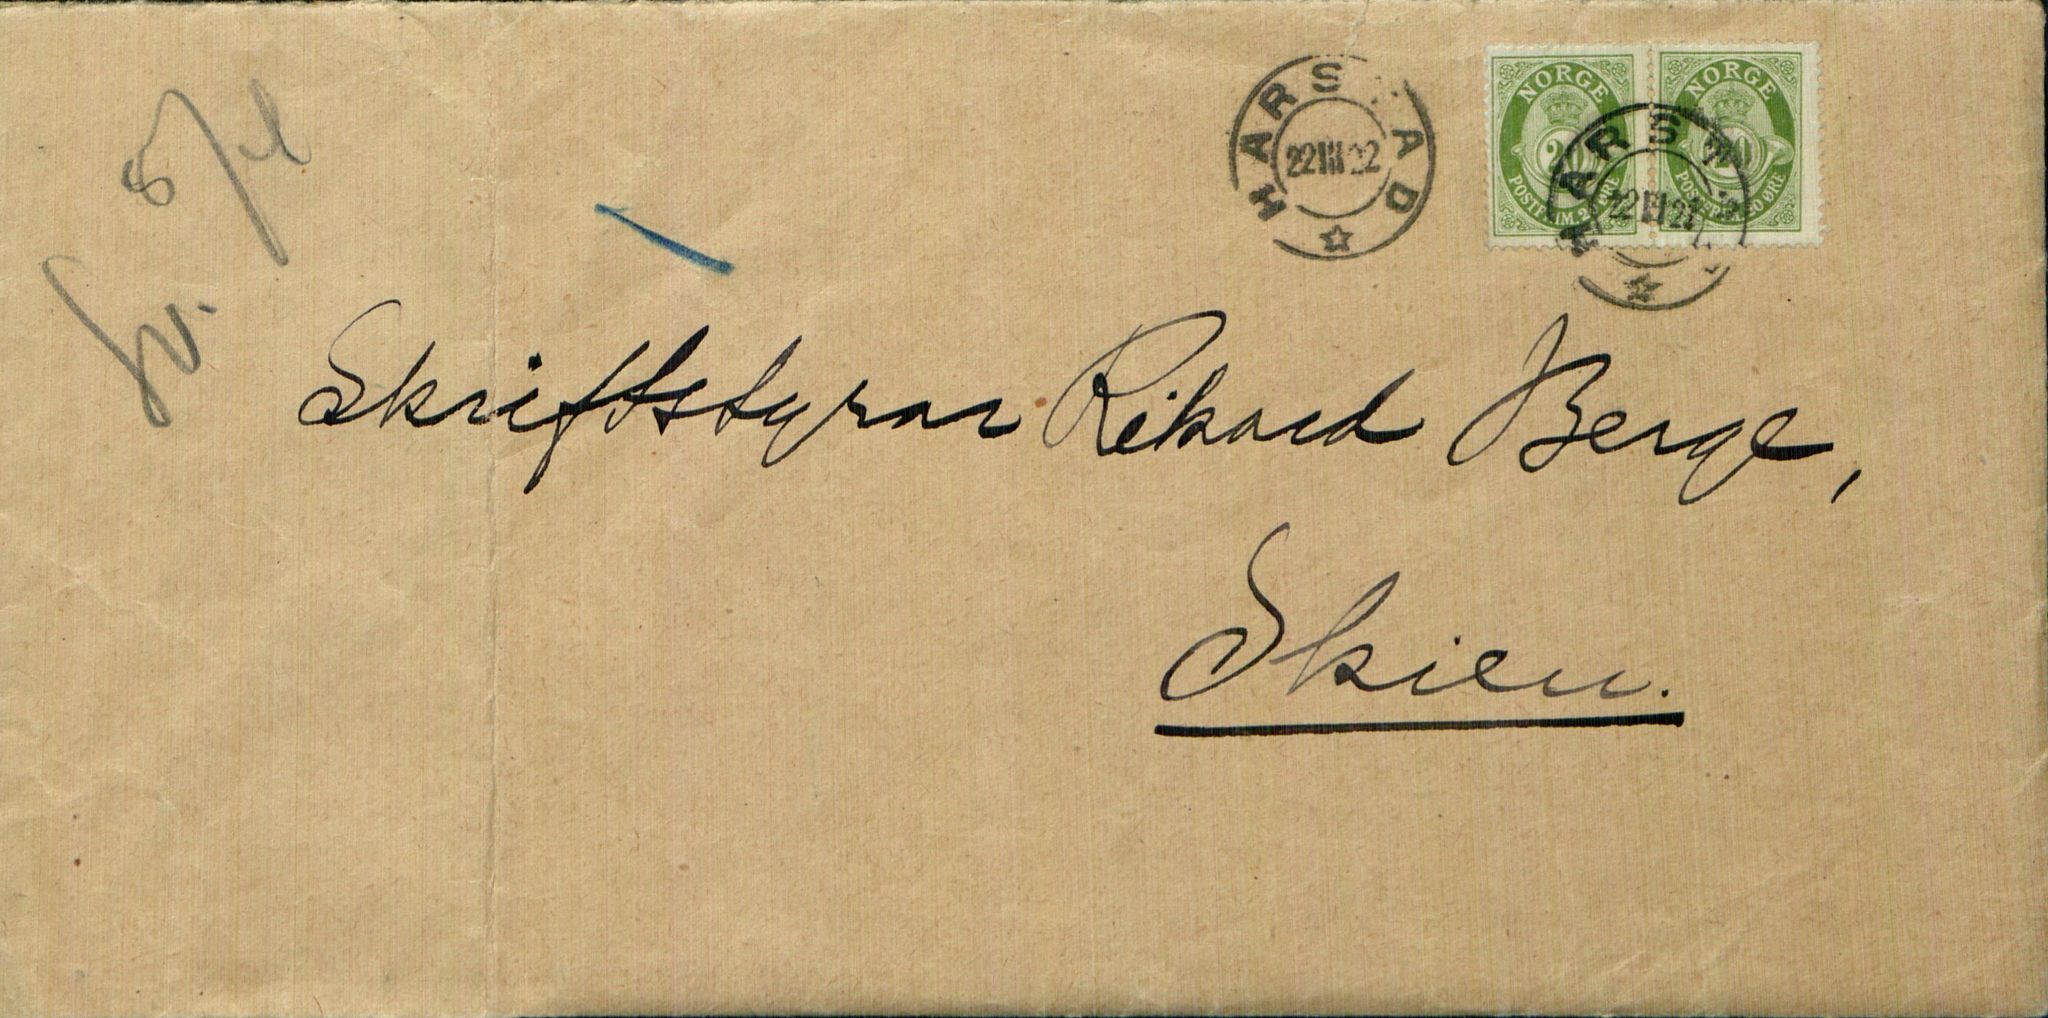 Sv. 8/4
HARSTAD
22 III 22
NORGE
20
POSTFRIM. 20 ØRE
NORGE
20
POSTFRIM. 20 ØRE
HARSTAD
22 III 22
Skriftstyrar Rikard Berge,
Skien.